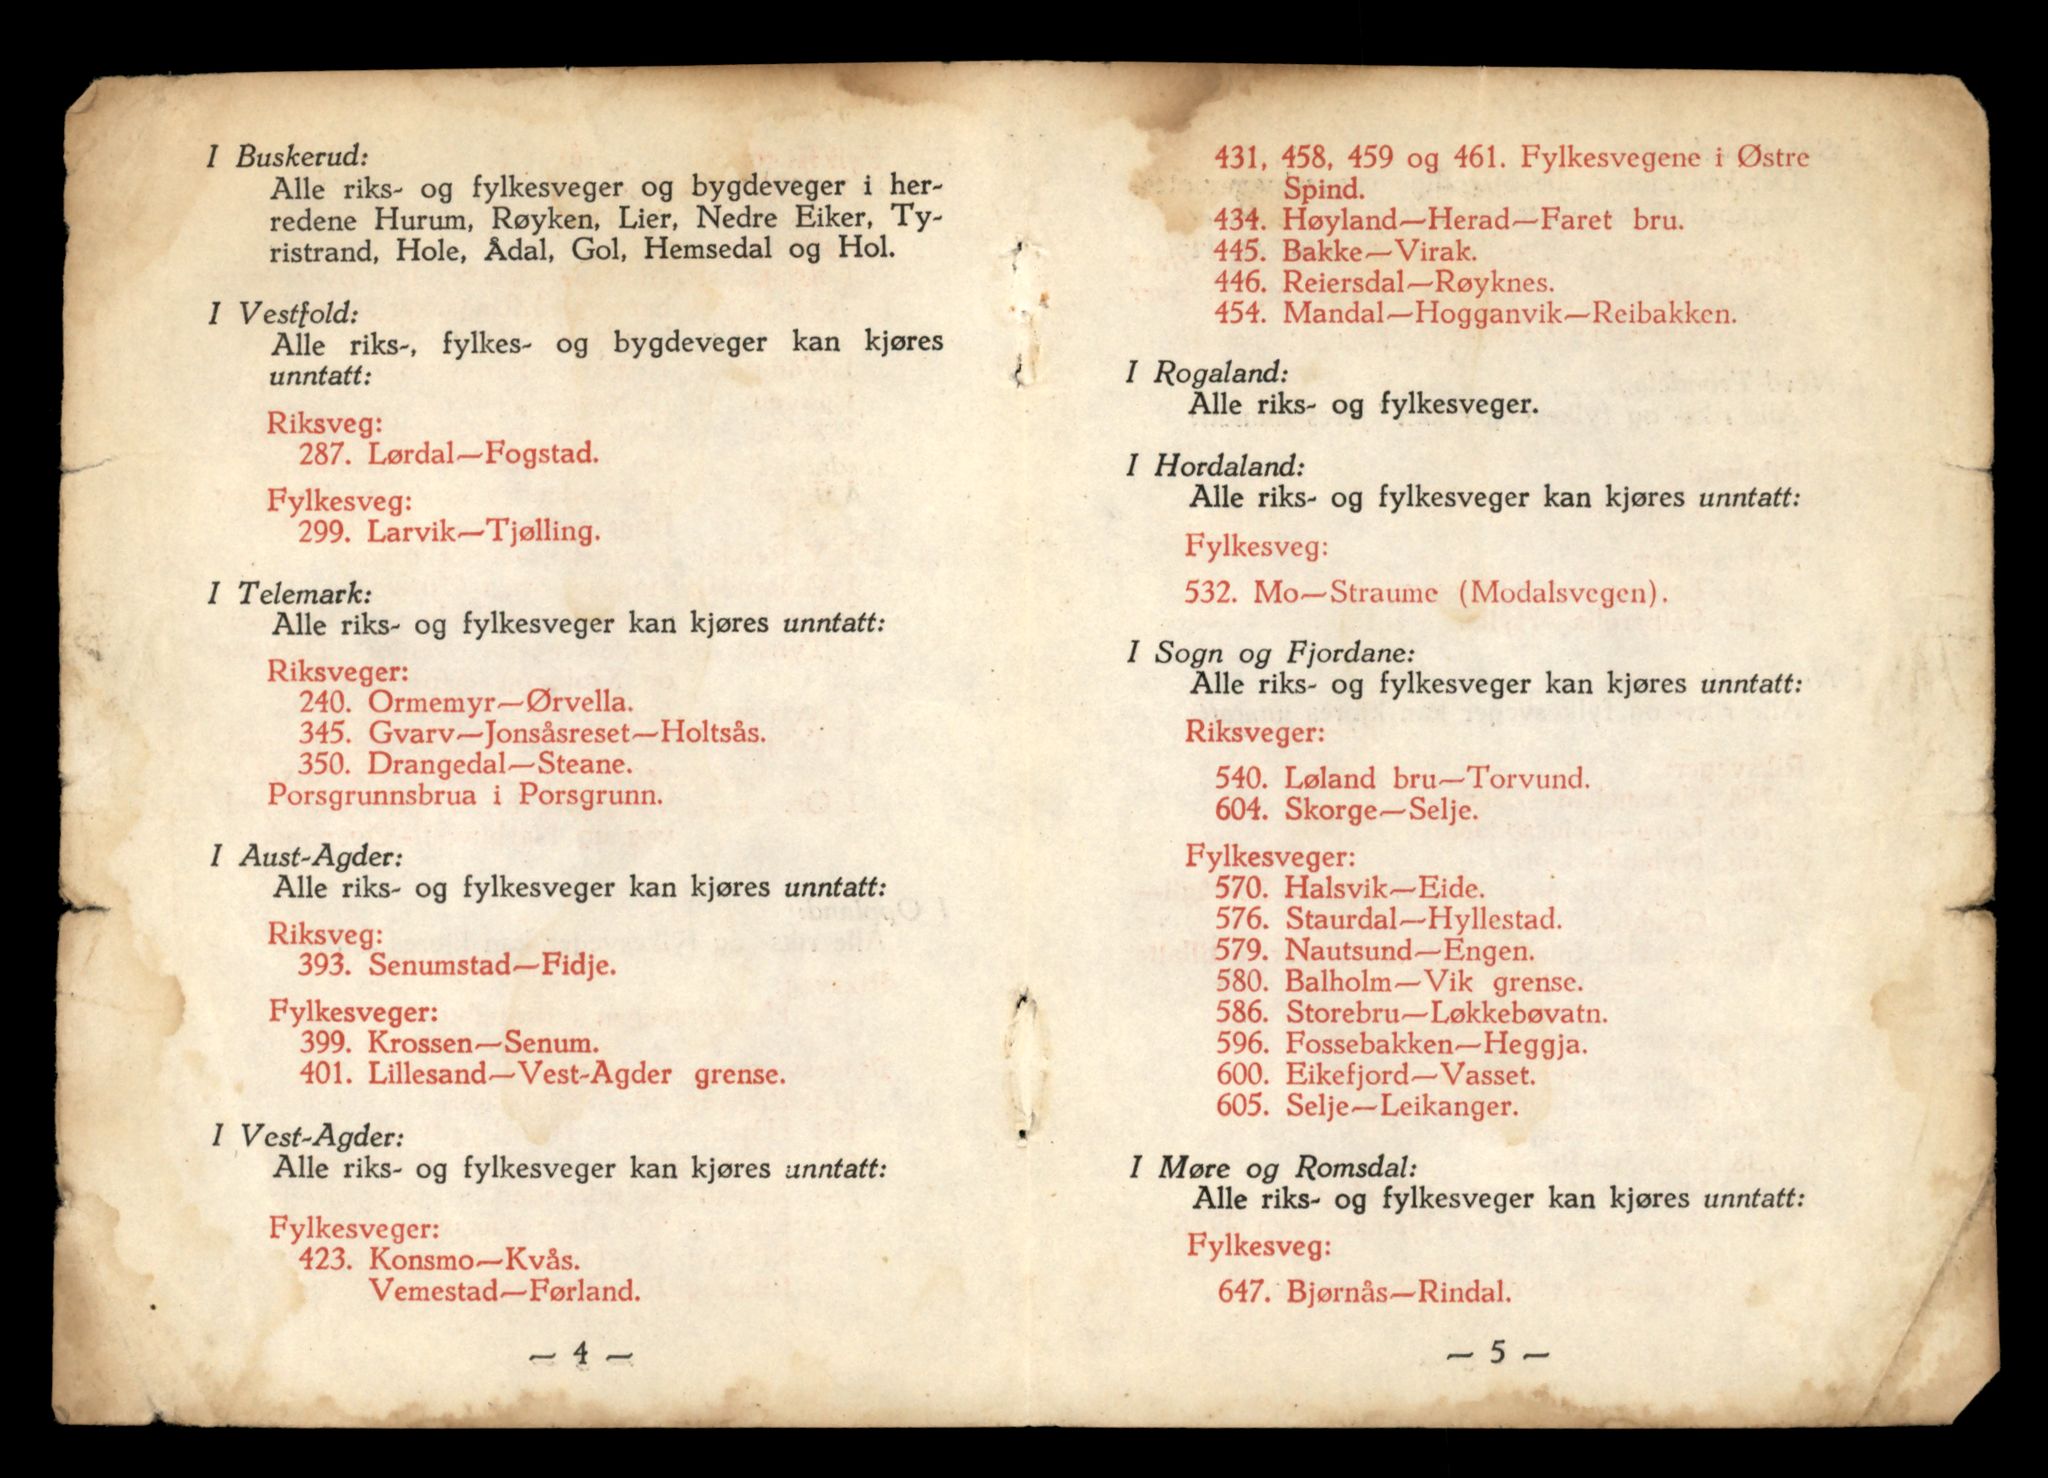 I Buskerud:
Alle riks- og fylkesveger og bygdeveger i her-
redene Hurum, Røyken, Lier, Nedre Eiker, Ty-
ristrand, Hole, Ådal, Gol, Hemsedal og Hol.
I Vestfold:
Alle riks-, fylkes- og bygdeveger kan kjøres
unntatt:
Riksveg:
287. Lørdal—Fogstad.
Fylkesveg:
299. Larvik—Tjølling.
I Telemark:
Alle riks- og fylkesveger kan kjøres unntatt:
Riksveger:
240. Ormemyr—Ørvella.
345. Gvarv—Jonsåsreset—Holtsås.
350. Drangedal—Steane.
Porsgrunnsbrua i Porsgrunn.
I Aust-Agder:
Alle riks- og fylkesveger kan kjøres unntatt:
Riksveg:
393. Senumstad—Fidje.
Fylkesveger:
399. Krossen—Senum.
401. Lillesand—Vest-Agder grense.
I Vest-Agder:
Alle riks- og fylkesveger kan kjøres unntatt:
Fylkesveger:
423. Konsmo—Kvås.
Vemestad—Førland.
— 4 —
431, 458, 459 og 461. Fylkesvegene i Østre
Spind.
434. Høyland—Herad—Faret bru.
445. Bakke—Virak.
446. Reiersdal—Røyknes.
454. Mandal—Hogganvik—Reibakken.
I Rogaland:
Alle riks- og fylkesveger.
I Hordaland:
Alle riks- og fylkesveger kan kjøres unntatt:
Fylkesveg:
532. Mo—Straume (Modalsvegen).
I Sogn og Fjordane:
Alle riks- og fylkesveger kan kjøres unntatt:
Riksveger:
540. Løland bru—Torvund.
604. Skorge—Selje.
Fylkesveger:
570. Halsvik—Eide.
576. Staurdal—Hyllestad.
579. Nautsund—Engen.
580. Balholm—Vik grense.
586. Storebru—Løkkebøvatn.
596. Fossebakken—Heggja.
600. Eikefjord—Vasset.
605. Selje—Leikanger.
I Møre og Romsdal:
Alle riks- og fylkesveger kan kjøres unntatt:
Fylkesveg:
647. Bjørnås—Rindal.
— 5 —